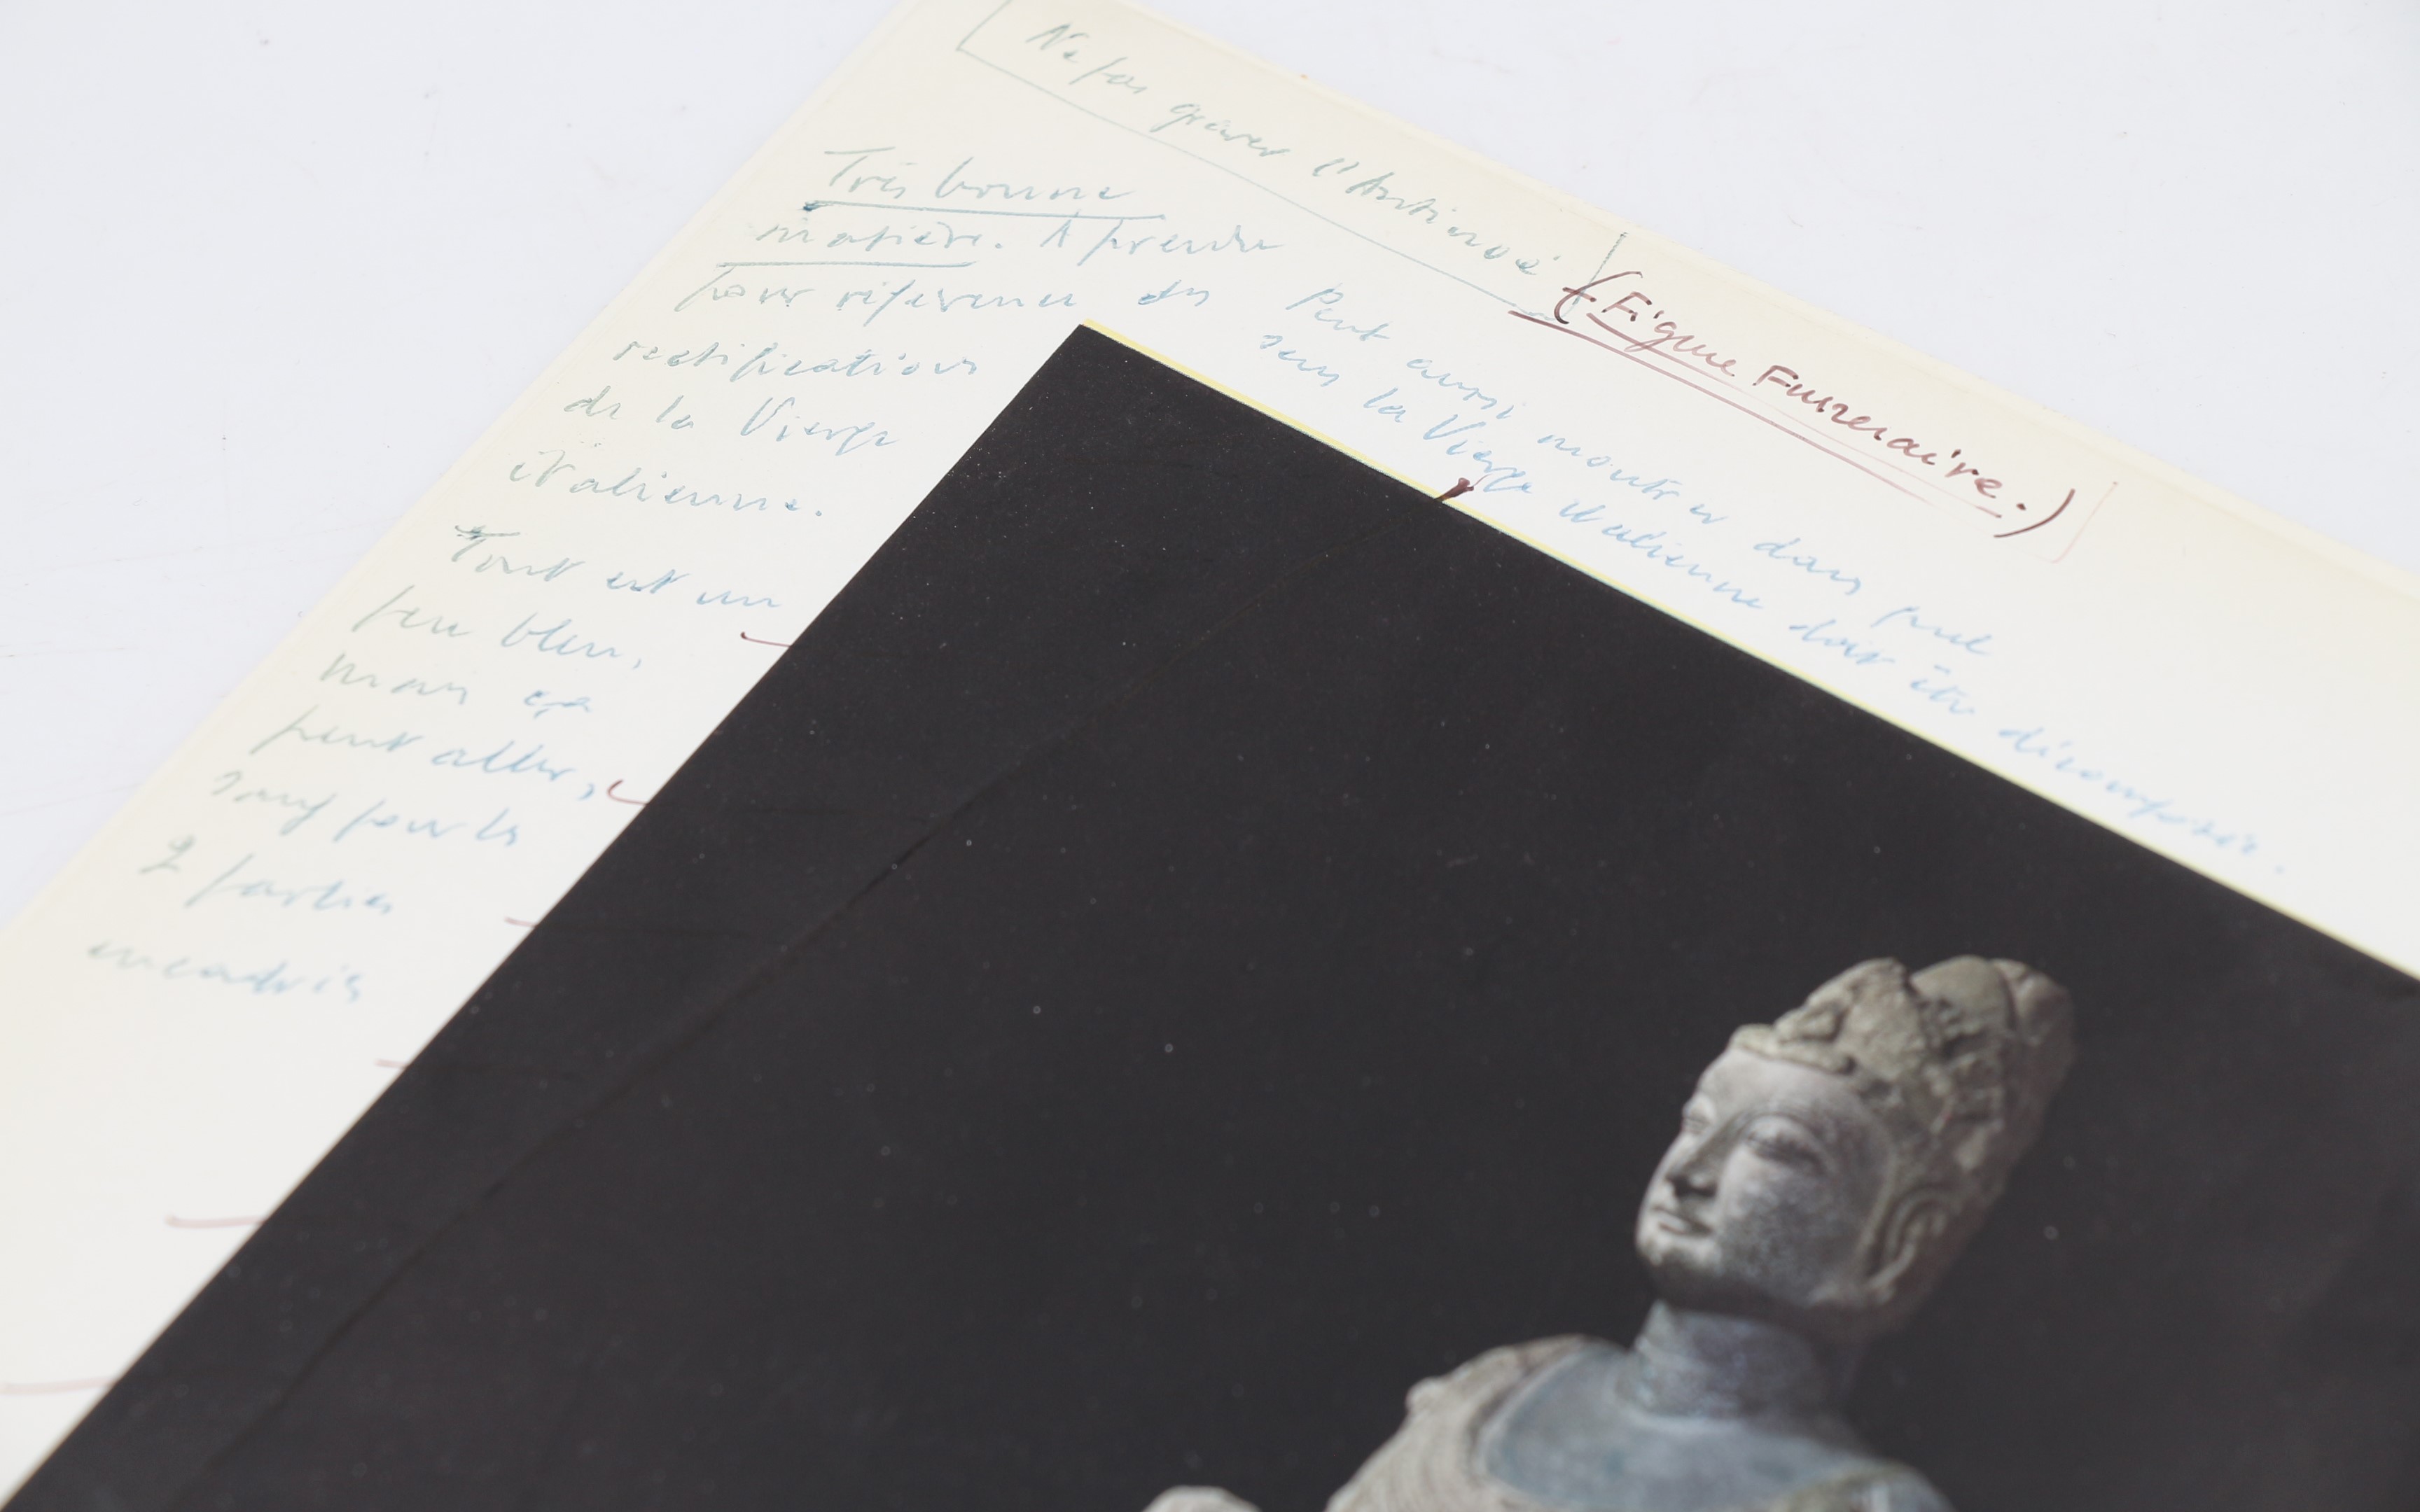 Ne pas graver l'Antinoé (Figure Funeraire.)
Très bonne
matière. A prendre
pour référence des
rectifications
de la Vierge
italienne.
Tout est un
peu bleu,
mais ça
peut aller,
sauf pour les
2 parties
encadrées
Peut aussi montrer dans quel
sens la Vierge italienne doit être décomposée.